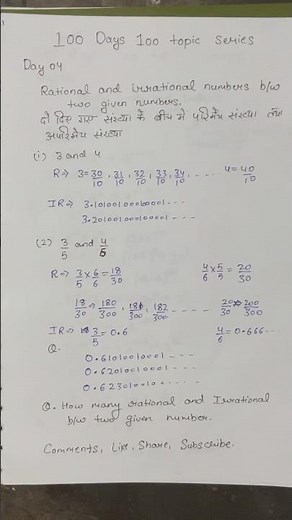 100 Days 100 topic series
Day 04
Rational and irrational numbers b/w
two given numbers.
दो दिए गए संख्या के बीच में परिमेय संख्या तथा
अपरिमेय संख्या
(1) 3 and 4
R⇒ 3=30/10, 31/10, 32/10, 33/10, 34/10, ---- 4=40/10
IR⇒ 3.1010010001---
3.2010010001---
(2) 3/5 and 4/6
R⇒ 3/5 × 6/6 = 18/30 4/6 × 5/5 = 20/30
18/30 ⇒ 180/300, 181/300, 182/300 ----- 20/30 ⇒ 200/300
IR⇒ 3/5 = 0.6 4/6 = 0.666--
Q.
0.61010010001---
0.62010010001---
0.623010010---
Q. How many rational and Irrational
b/w two given number.
Comments, Like, Share, Subscribe.